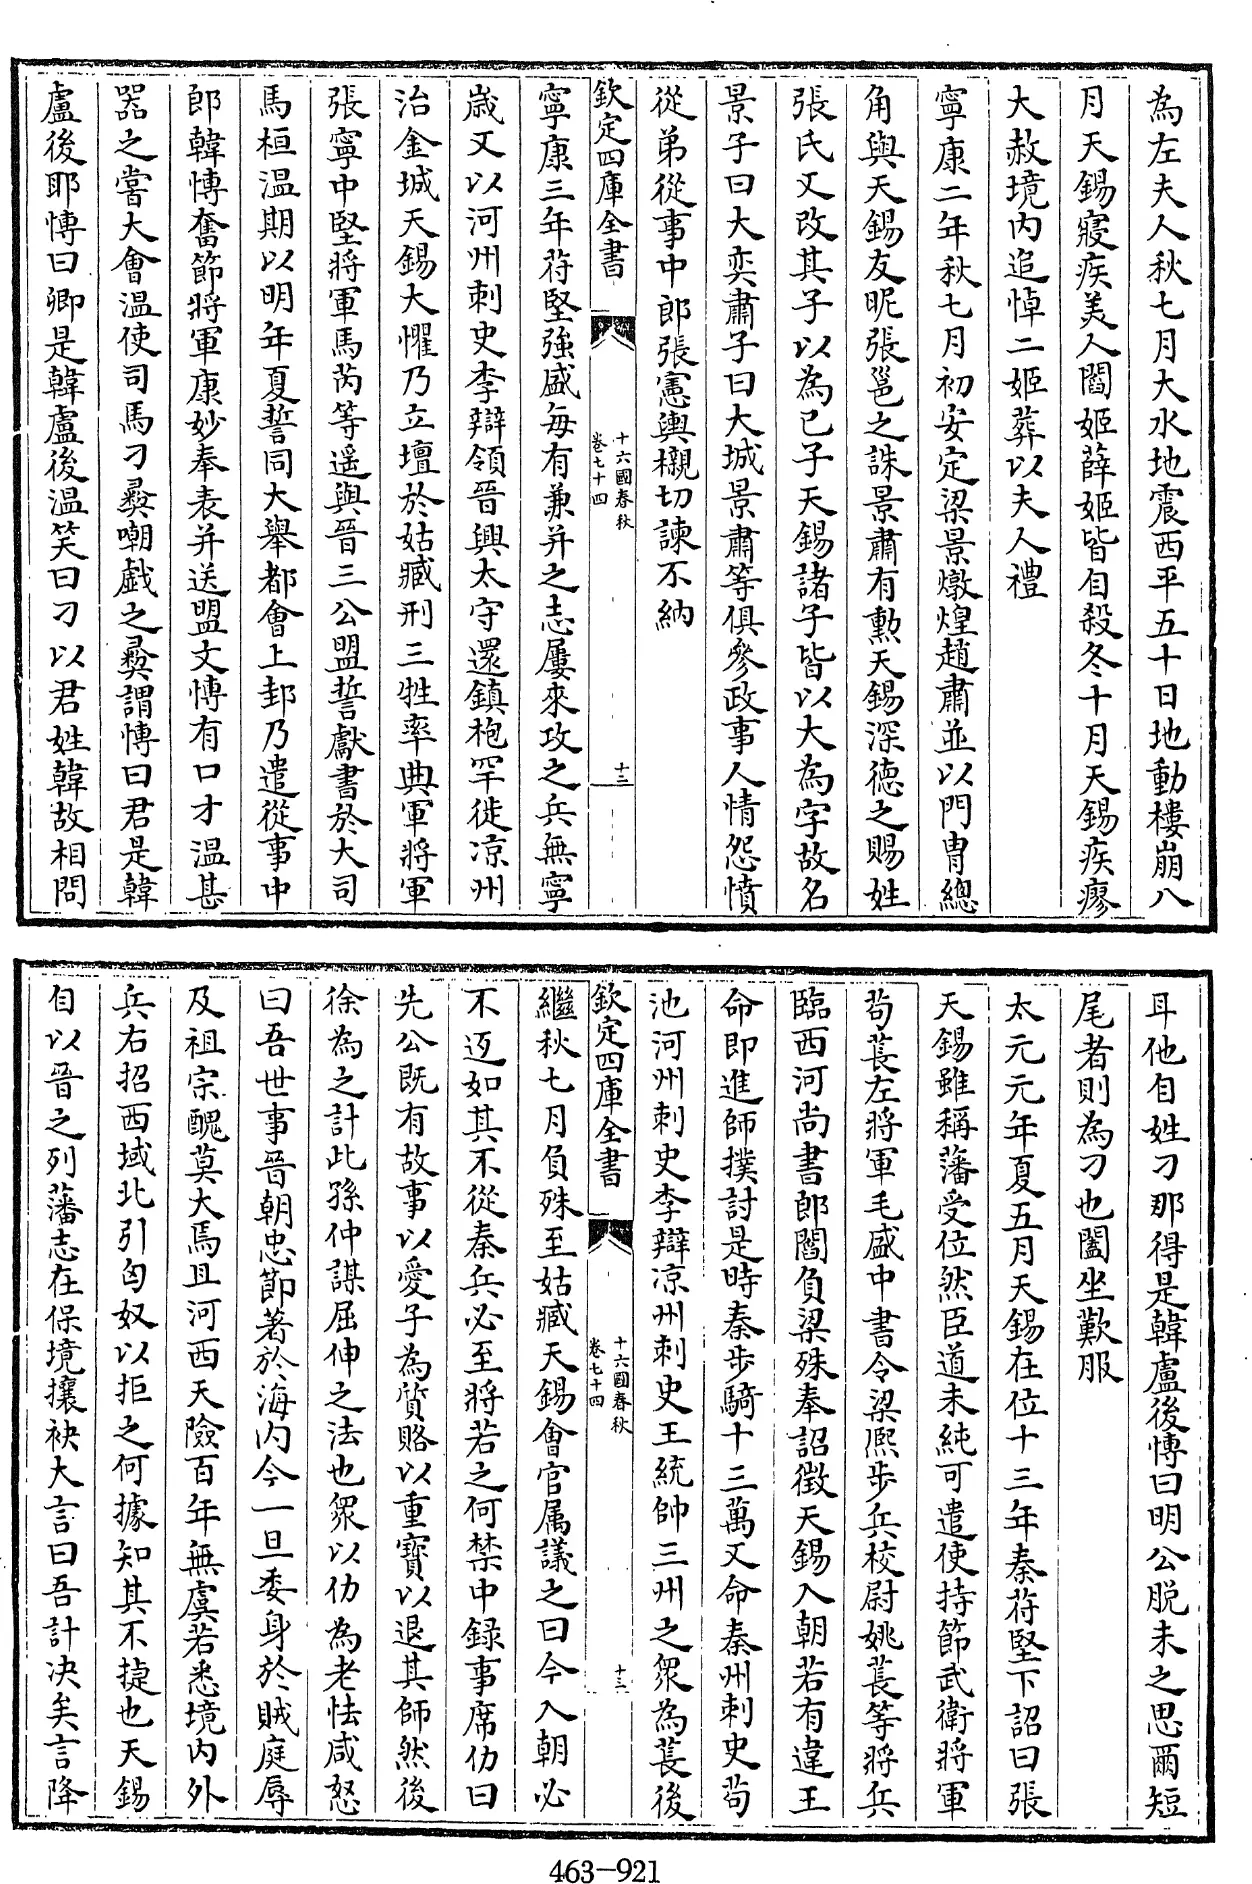 為左夫人秋七月大水地震西平五十日地動樓崩八
月天錫寢疾美人閻姬薛姬皆自殺冬十月天錫疾瘳
大赦境内追悼二姬葬以夫人禮
寧康二年秋七月初安定梁景燉煌趙肅並以門胄總
角與天錫友昵張邕之誅景肅有勲天錫深德之賜姓
張氏又改其子以為已子天錫諸子皆以大為字故名
景子曰大奕肅子曰大城景肅等俱參政事人情怨憤
從弟從事中郎張憲輿櫬切諫不納
欽定四庫全書
十六國春秋
卷七十四
十二
寧康三年苻堅強盛每有兼并之志屢來攻之兵無寧
歳又以河州刺史李辯領晉興太守還鎮枹罕徙凉州
治金城天錫大懼乃立壇於姑臧刑三牲率典軍將軍
張寧中堅將軍馬芮等遥與晉三公盟誓獻書於大司
馬桓温期以明年夏誓同大舉都會上邽乃遣從事中
郎韓博奮節將軍康妙奉表并送盟文博有口才温甚
器之嘗大會温使司馬刁彛嘲戲之彛謂博曰君是韓
盧後耶博曰卿是韓盧後温笑曰刁以君姓韓故相問
耳他自姓刁那得是韓盧後博曰明公脱未之思爾短
尾者則為刁也闔坐歎服
太元元年夏五月天錫在位十三年秦苻堅下詔曰張
天錫雖稱藩受位然臣道未純可遣使持節武衛將軍
茍萇左將軍毛盛中書令梁熈步兵校尉姚萇等將兵
臨西河尚書郎閻負梁殊奉詔徵天錫入朝若有違王
命即進師撲討是時秦步騎十三萬又命秦州刺史茍
池河州刺史李辯凉州刺史王統帥三州之衆為萇後
欽定四庫全書
十六國春秋
卷七十四
十三
繼秋七月負殊至姑臧天錫會官属議之曰今入朝必
不返如其不從秦兵必至將若之何禁中録事席仂曰
先公既有故事以愛子為質賂以重寳以退其師然後
徐為之計此孫仲謀屈伸之法也衆以仂為老怯咸怒
曰吾世事晉朝忠節著於海内今一旦委身於賊庭辱
及祖宗醜莫大焉且河西天險百年無虞若悉境内外
兵右招西域北引匈奴以拒之何據知其不捷也天錫
自以晉之列藩志在保境攘袂大言曰吾計决矣言降
463-921